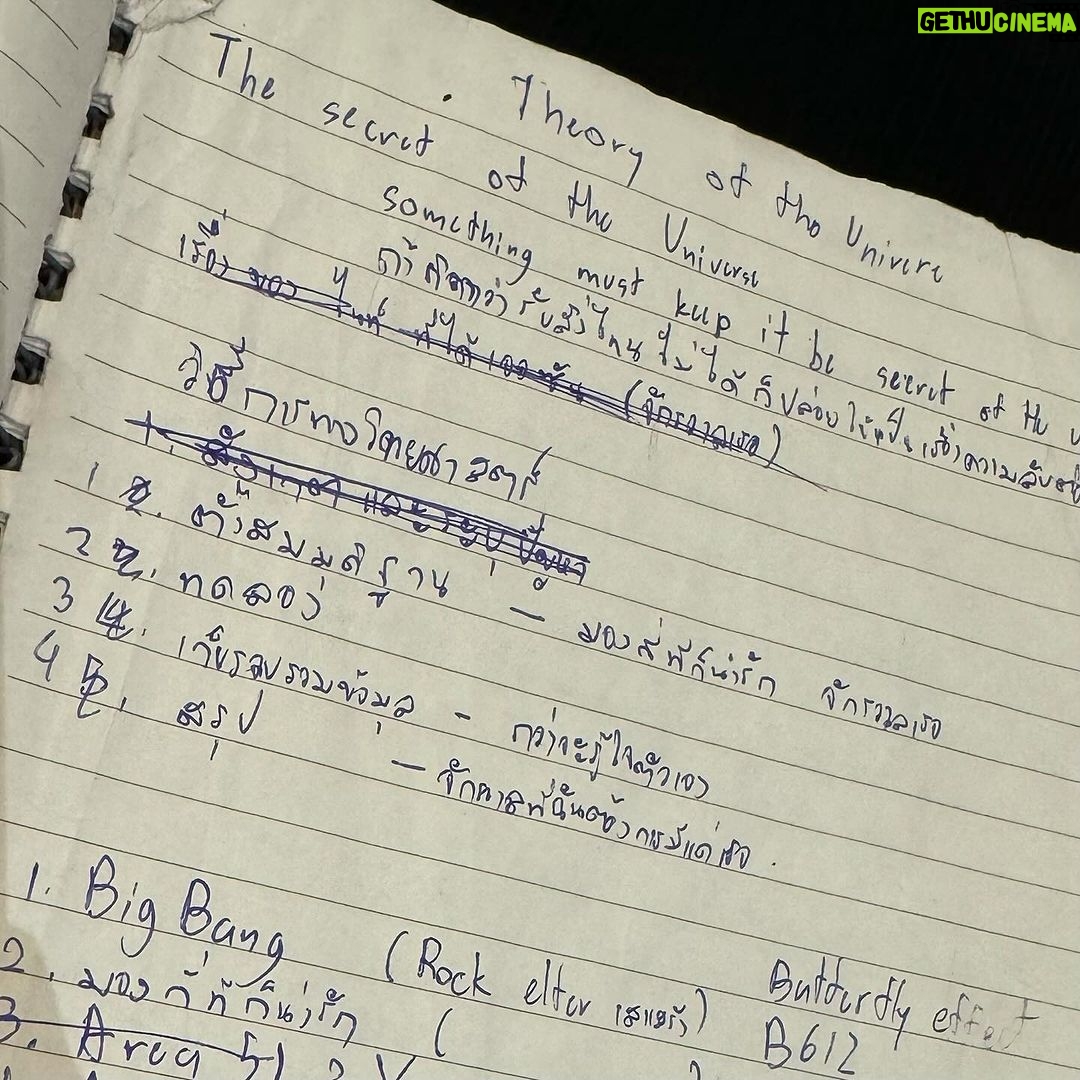 GETHUCINEMA
Theory of the Univere
The secret of the Universe
something must kup it be secret of the u
ถ้าคิดว่ารับสิ่งไหนไม่ได้ก็ปล่อยให้เป็นเรื่องความลับ
เรื่องของ ที่ได้เจอกัน (จักรวาลเธอ)
วิธีการทางวิทยาศาสตร์
1. สังเกตและระบุปัญหา
1 2. ตั้งสมมติฐาน - มองกี่ทีก็น่ารัก จักรวาลเธอ
2 3. ทดลอง
3 4. เก็บรวบรวมข้อมูล - กว่าจะรู้ใจตัวเอง
4 5. สรุป - จักรวาลที่ฉันต้องการมีแค่เธอ.
1. Big Bang (Rock elter เสแสร้ง) Butterfly effect
2. มองกี่ทีก็น่ารัก ( B612
3. Area 51